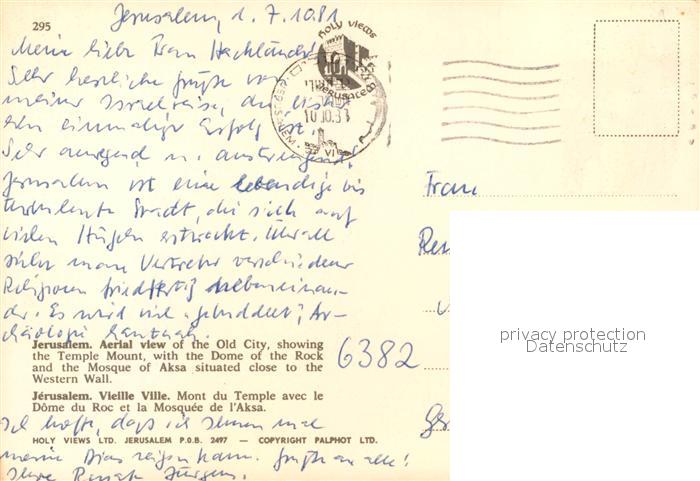 295
Jerusalem, d. 7.10.81
Meine liebe Frau
Sehr herzliche Grüße von
meiner Israelreise, die bisher
ein einmaliger Erfolg ist.
Sehr anregend u. anstrengend!
Jerusalem ist eine lebendige bis
turbulente Stadt, die sich auf
vielen Hügeln erstreckt. Überall
sieht man Vertreter verschiedener
Religionen friedfertig nebeneinan-
der. Es wird viel gebuddelt, Ar-
chäologie
Jerusalem. Aerial view of the Old City, showing
the Temple Mount, with the Dome of the Rock
and the Mosque of Aksa situated close to the
Western Wall.
Jérusalem. Vieille Ville. Mont du Temple avec le
Dôme du Roc et la Mosquée de l'Aksa.
Ich hoffe, daß ich Ihnen mal
HOLY VIEWS LTD. JERUSALEM P.O.B. 2497 — COPYRIGHT PALPHOT LTD.
meine Dias zeigen kann. Grüße an alle!
Ihre
HOLY VIEWS
JERUSALEM
10.10.83
VI
Frau
6382
privacy protection
Datenschutz